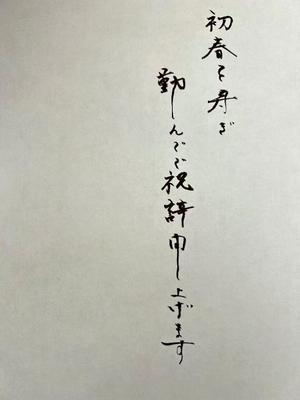 初春を寿ぎ
勤しんでで祝辞申し上げます